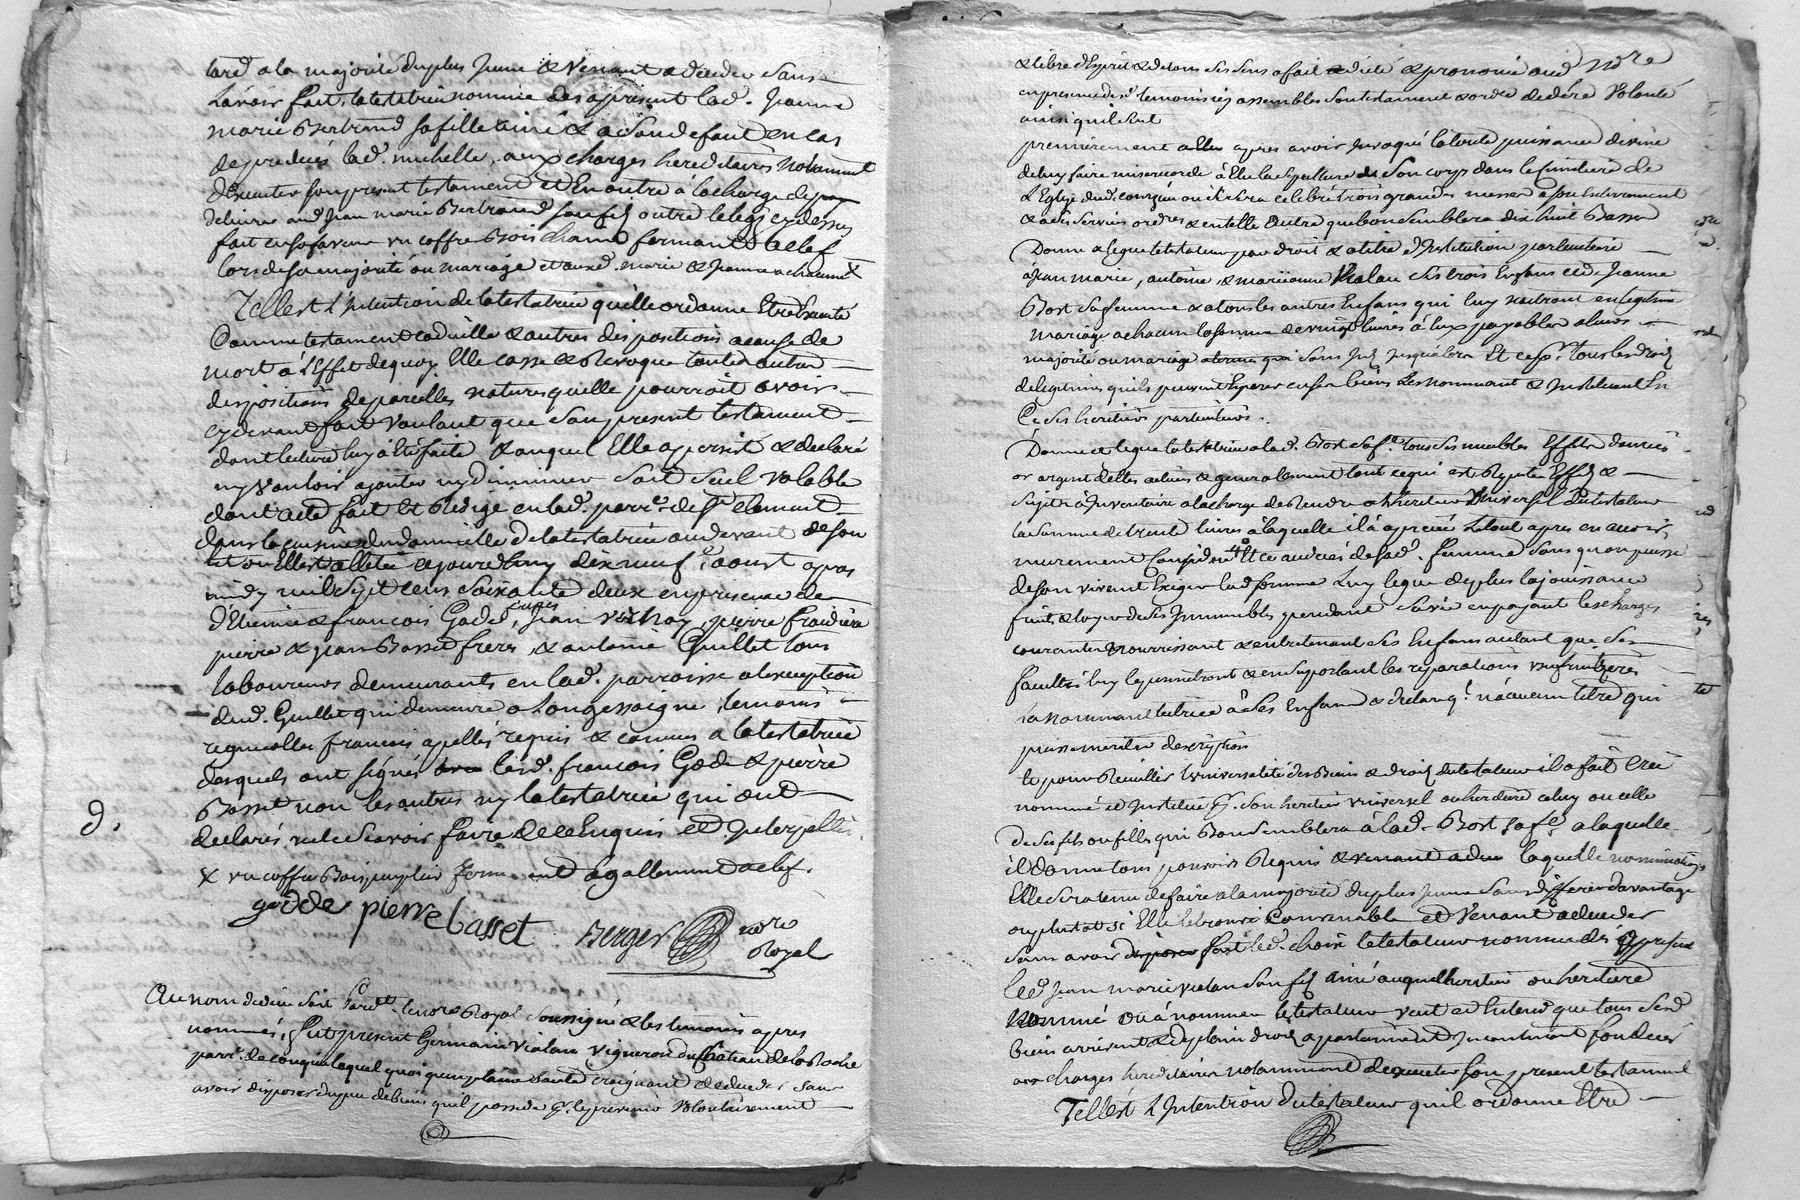 tard a la majorité du plus jeune & venant a deceder sans
l'avoir fait, la testatrice nomme des a present lad. Jeanne
marie Bertrand sa fille ainé & a son defaut en cas
de predeces lad. michelle, aux charges hereditaires notamment
d'executer son present testament et en outre à la charge de
delivrer aud. Jean marie Bertrand son fils outre le legs cy dessus
fait en sa faveur un coffre Bois fermant a clef
lors de sa majorité ou mariage et ausd. marie & Jeanne a chacune X
Telle est l'intention de la testatrice qu'elle ordonne Etre Executé
Comme testament codicille & autres dispositions a cause de
mort à l'Effet de quoy Elle casse & Revoque toutes autres
dispositions de pareilles natures quelle pourroit avoir
cy devant fait voulant que son present testament
dont lecture luy à été faite & auquel Elle a persisté & declaré
ny vouloir ajouter ny diminuer soit seul valable
dont acte fait et Redigé en lad. parr.e de St Clement
dans la cuisine du domicille de la testatrice au devant de son
lit ou Elle est allitée cejourdhuy dix neuf aoust apres
midy mil sept cens soixante deux en presence de
d'Etienne & francois Gode, Jean vichay, pierre fraudière
pierre & jean Basset freres, & antoine Guillet tous
laboureurs demeurants en lad. parroisse a l'exception
dud. Guillet qui demeure a Longessaigne, temoins
requis & connus a la testatrice
desquels ont signés lesd. francois Gode & pierre
Basset non les autres ny la testatrice qui ont
declarés ne le scavoir faire de ce Enquis et Interpellés.
X un coffre Bois peuplier fermant egallement a clef.
godde pierre basset Berger nore
Royal
9.
Au nom de dieu soit Pardt. le nore Royal soussigné & les temoins apres
nommés, fut present Germain vialan vigneron du Chateau de la Roche
parr. de lequel quoi qu'en plaine santé craignant de deceder sans
avoir disposer du peu de biens quil possede volontairement
& libre d'Esprit & de tous ses sens a fait dicté & prononcé aud. Nore
en presence desd. temoins icy assemblés son testament & ordre de derre volonté
ainsi quil suit
premierement a Elu apres avoir invoqué la toute puissance divine
de luy faire misericorde à Elu la sepulture de son corps dans le cimetiere de
L'Eglise dud. ou il sera celebré trois grandes messes a son Enterrement
& autres services ordres & en telle Autre que bon semblera dix huit Basses
Donne & legue le testateur par droit & a titre d'Institution particuliere
à Jean marie, antoine, & marianne Vialan ses trois Enfans & de Jeanne
Bost sa femme & a tous les autres Enfans qui luy naitront en legitime
mariage a chacun la somme de vingt livres à Eux payables a leurs
majorité ou mariage sans Int. jusqu'alors Et ce pr. tous les droits
de legitimes quils peuvent Esperer en ses biens les nommant & instituant En
Ce ses heritiers particuliers.
Donne & legue le testateur a lad. Bost sa fe. tous ses meubles Effets denrées
or argent dettes actives & generalement tout ce qui est Reputé Effets &
sujets à Inventaire a la charge de Rendre a l'heritier Universel du testateur
la somme de trente livres à laquelle il à apprecié le tout apres en avoir
murement Consideré Et ce au deces de sad. femme sans qu'on puisse
de son vivent Exiger lad. somme Luy legue de plus la jouissance
fruits & loyer de ses Immeubles pendant sa vie en payant les charges
courantes nourrissant & entretenant ses Enfans autant que ses
facultés luy le permettront & en suportant les reparations usufruitieres
la nommant tutrice à ses Enfans & n'aucun titre qui
puisse meriter description
Et pour Recuillir luniversalité des Biens & droits du testateur il a fait Creé
nommé et Institué pr. son heritier universel ou heritiere celuy ou celle
de ses fils ou filles qui Bon semblera à lad. Bost sa fe. a laquelle
il donne tous pouvoirs Requis & venant laquelle nomination
Elle sera tenu de faire a la majorité du plus jeune sans differer davantage
ou plustot si Elle le trouve Convenable et Venant a deceder
sans avoir fait led. choix le testateur nomme dés a present
led. Jean marie vialan son fils ainé auquel heritier ou heritiere
Nommé ou à nommer le testateur veut et Entend que tous sesd.
biens arrivent & de plein droit apartiennent incontinent son deces
aux charges hereditaires notamment d'executer son present testament
Telle est l'Intention du testateur qu'il ordonne Etre